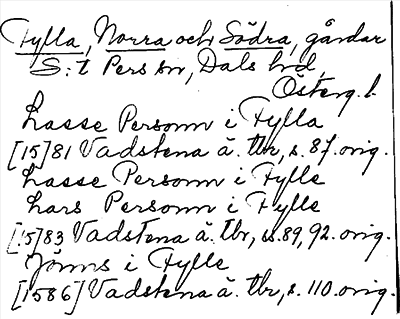 Fylla, Norra och Södra, gårdar
S:t Pers sn, Dals hd
Österg. l.
Lasse Personn i Fylla
[15]81 Vadstena ä. tbr, s. 87. orig.
Lasse Personn i Fylle
Lars Personn i Fylle
[15]83 Vadstena ä. tbr, ss. 89, 92. orig.
Jönns i Fylle
[1586] Vadstena ä. tbr, s. 110. orig.